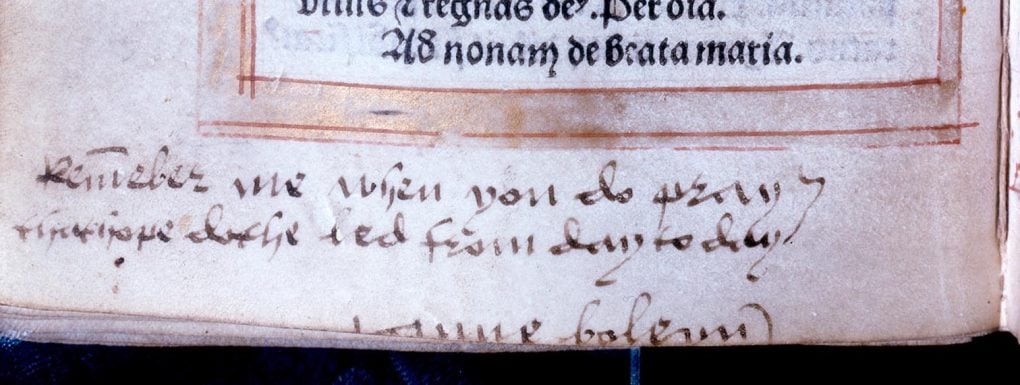 viuis & regnas deꝰ. Per oīa.
Ad nonam de beata maria.
Rem̄eber me when you do pray
that hope dothe led from day to day
anne boleyn